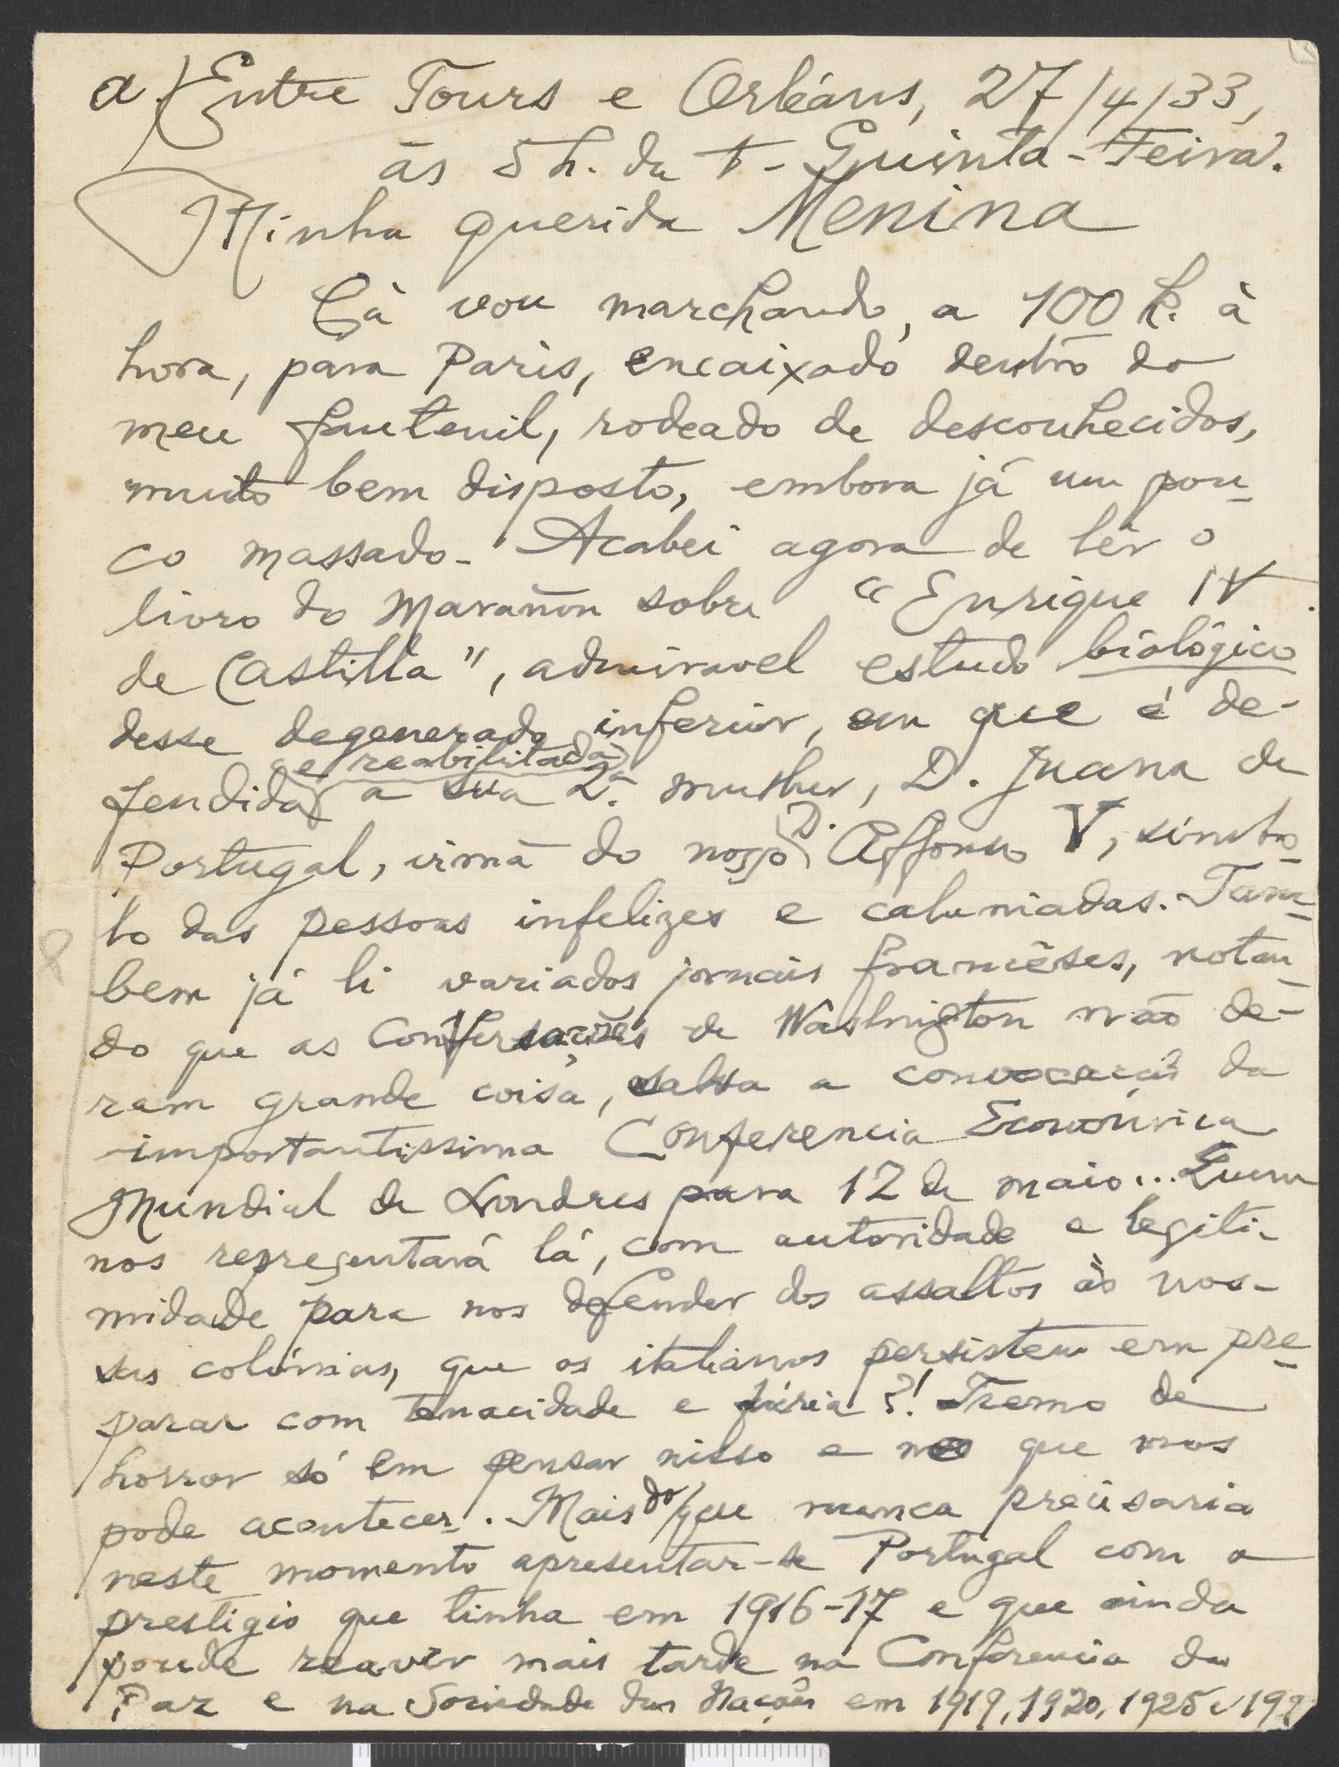 a) Entre Tours e Orléans, 27/4/33,
às 5 h. da t- Quinta-Feira.
Minha querida Menina
Cá vou marchando, a 100 k. à
hora, para Paris, encaixado dentro do
meu fauteuil, rodeado de desconhecidos,
muito bem disposto, embora já um pou-
co massado. Acabei agora de lêr o
livro do Marañon sobre "Enrique IV
de Castilla", admiravel estudo biológico
desse degenerado inferior, em que é de-
e reabilitada
fendida a sua 2ª. mulher, D. Juana de
Portugal, irmã do nosso D. Affonso V, símbo-
lo das pessoas infelizes e caluniadas. Tam-
bem já li variados jornais francêses, notan-
do que as Conversações de Washington não dé-
ram grande coisa, salvo a convocação da
importantissima Conferencia Económica
Mundial de Londres para 12 de maio... Quem
nos representará lá, com autoridade e legiti-
midade para nos defender dos assaltos às nos-
sas colónias, que os italianos persistem em pre-
parar com tenacidade e fúria?! Tremo de
horror só em pensar nisso e no que nos
pode acontecer. Mais do que nunca precisaria
neste momento apresentar-se Portugal com o
prestigio que tinha em 1916-17 e que ainda
poude reaver mais tarde na Conferencia da
Paz e na Sociedade das Nações em 1919, 1920, 1925 e